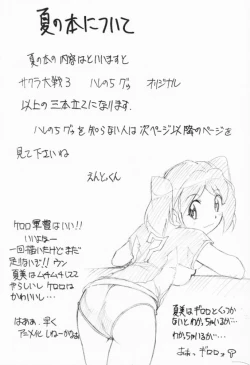 夏の本について
夏の本の内容はといいますと
サクラ大戦3 ハレのちグゥ オリジナル
以上の三本立てになります。
ハレのちグゥを知らない人は次ページ以降のページを
見て下さいね
えんどくん
ケロロ軍曹はいい!!
いいよなー
一回描いたけどまだ
足りないぞ!! ウン
夏美はムチムチして
やらしいし ケロロは
かわいいし…
はぁぁ、早く
アニメ化しねーかなぁ
夏美はギロロとくっつか
ないとわかっちゃいるが…
わかっちゃいるが…
あぁっ ギロロっ